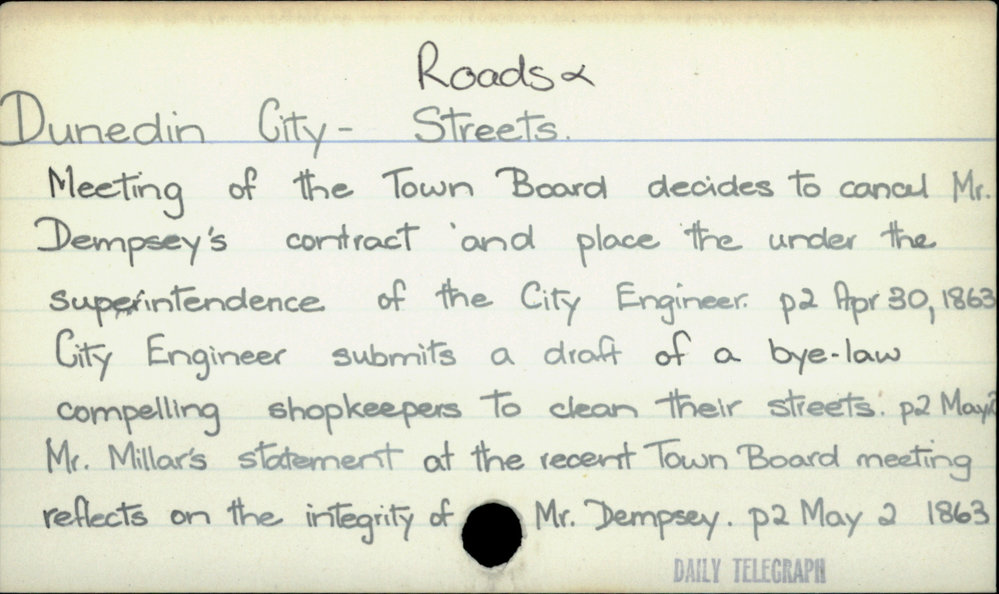 Roads &
Dunedin City - Streets.
Meeting of the Town Board decides to cancel Mr.
Dempsey's contract and place the under the
superintendence of the City Engineer. p2 Apr 30, 1863
City Engineer submits a draft of a bye-law
compelling shopkeepers to clean their streets. p2 May 2
Mr. Millar's statement at the recent Town Board meeting
reflects on the integrity of Mr. Dempsey. p2 May 2 1863
DAILY TELEGRAPH